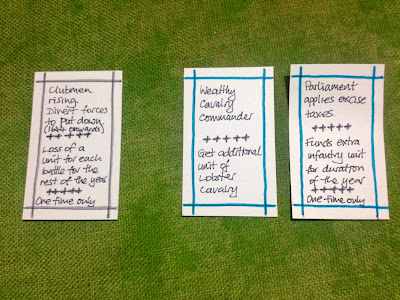 Clubmen
rising.
Divert forces
to put down
(1644 onwards)
+++++
Loss of a
unit for each
battle for the
rest of the year
+++++
One-time only
Wealthy
Cavalry
Commander
+++++
Get additional
unit of
Lobster
Cavalry
Parliament
applies excise
taxes.
+++++
Funds extra
infantry unit
for duration
of the year
+++++
One-time only